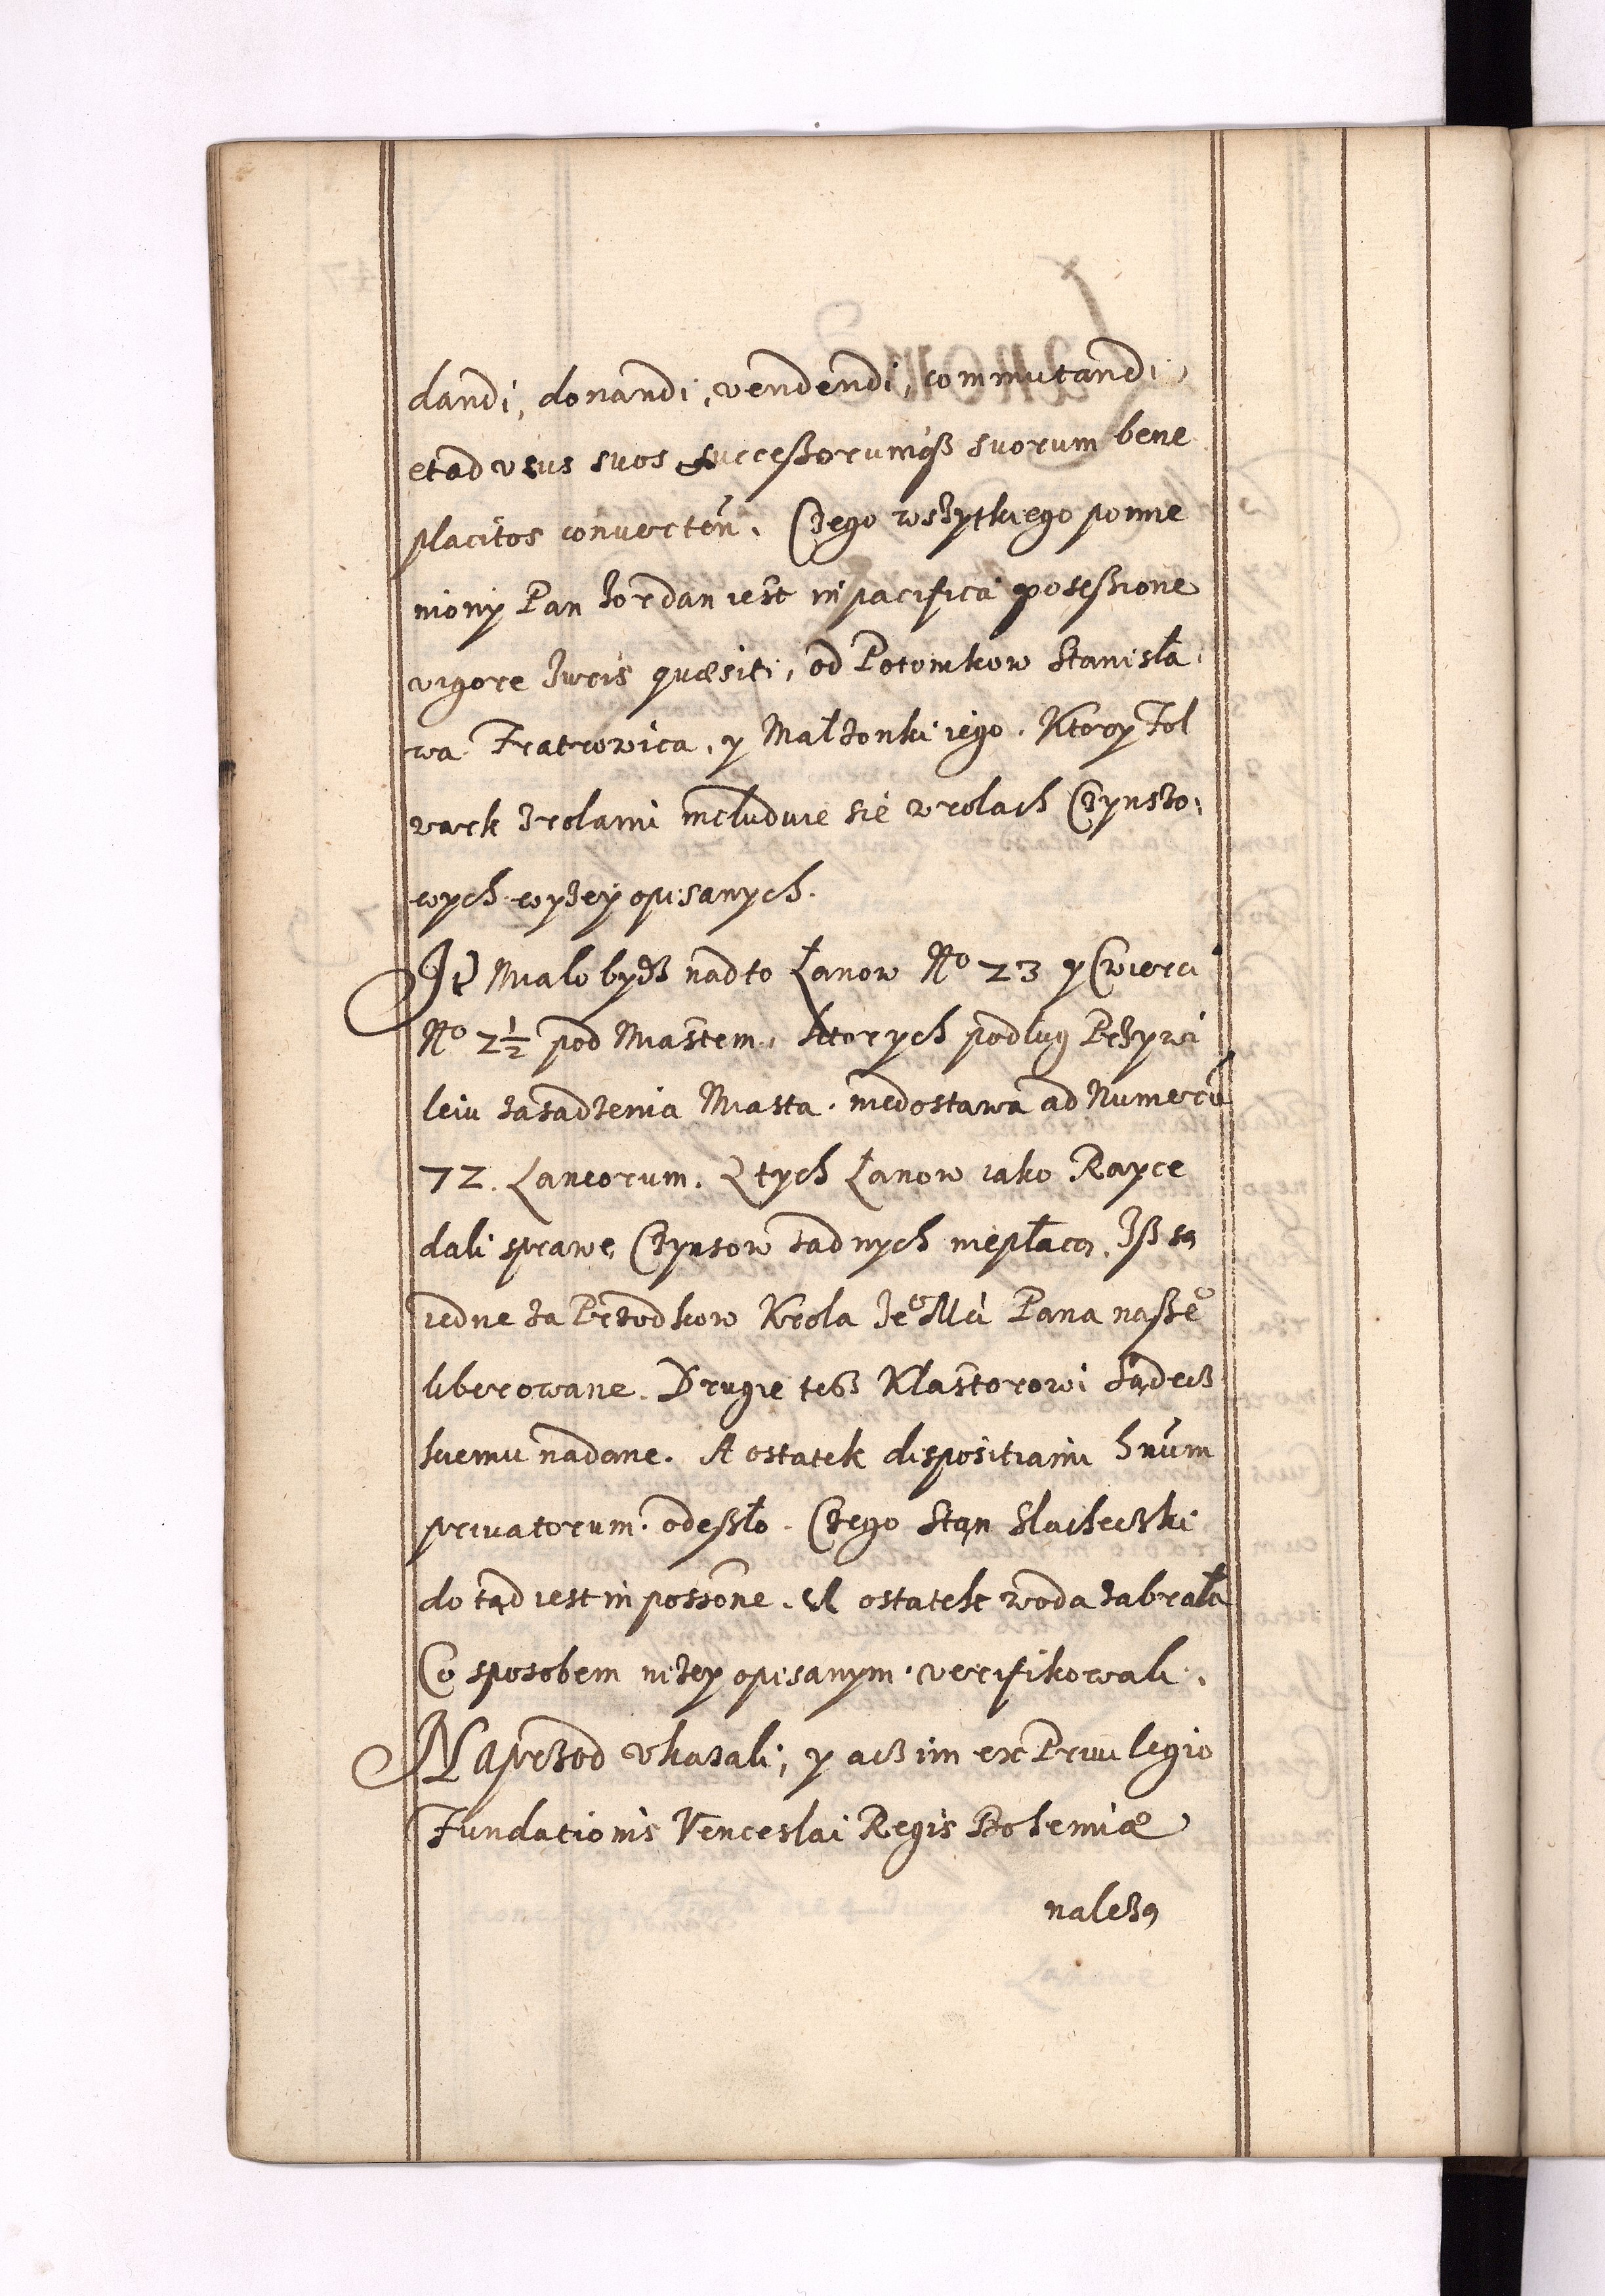 dandi, donandi, vendendi, commutandi,
et ad vsus suos successorumqß suorum bene
placitos conuerteñ. Czego wszytkiego pomie
niony Pan Jordan iest in pacifica possessione
vigore Juris quæsiti, od Potomkow Stanisła,
wa Fratrowica, y Małzonki iego. Ktory Fol
wark zrolami includuie sie wrolach Czynszo,
wych wyzey opisanych.
It Mialo bydz nadto Łanow No 23 y Cwierci
No 2 1/2 pod Miastem, ktorych podlug Przywi
leiu zasadzenia Miasta, niedostawa ad Numerũ
72. Laneorum. Ztych Łanow iako Rayce
dali sprawe, Czynsow zadnych niepłacą. Jß są
iedne za Przodkow Krola Jeo Mci Pana naßeo
liberowane. Drugie teß Klasztorowi Sądecz
kiemu nadane. A ostatek dispositiami hnũm
priuatorum odeszło. Czego Stan Slachecki
do tąd iest in possone. A ostatek woda zabrała
Co sposobem nizey opisanym verifikowali.
Naprzod vkazali, y acz im ex Priuilegio
Fundationis Venceslai Regis Bohemiæ
należą